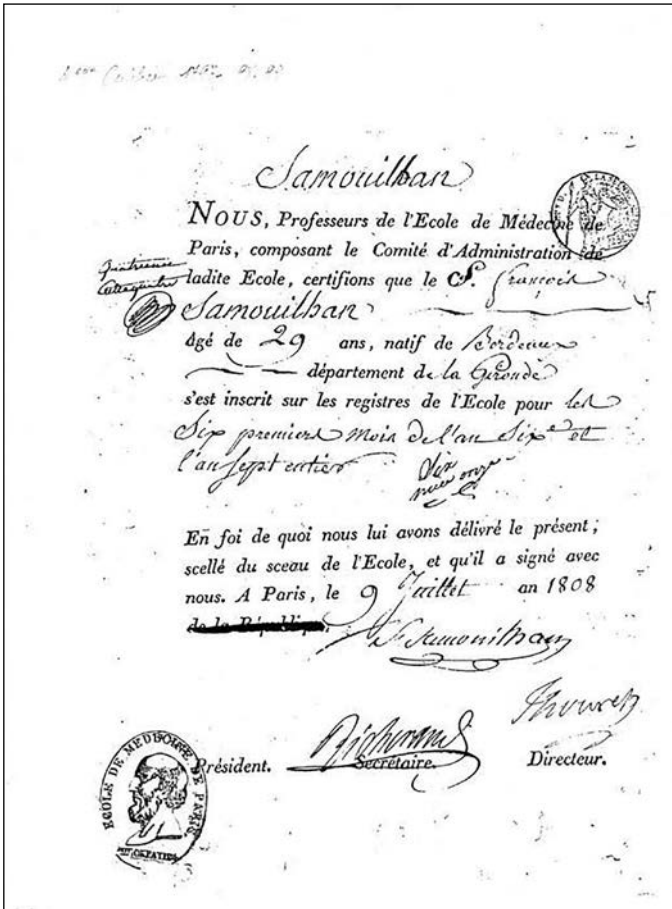 Samouilhan
NOUS, Professeurs de l'Ecole de Médecine de
Paris, composant le Comité d'Administration de
ladite Ecole, certifions que le C. françois
Samouilhan
âgé de 29 ans, natif de Bordeaux
département de la Gironde
s'est inscrit sur les registres de l'Ecole pour les
Six premiers mois de l'an Six e et
l'an Sept entier
En foi de quoi nous lui avons délivré le présent ;
scellé du sceau de l'Ecole, et qu'il a signé avec
nous. A Paris, le 9 Juillet an 1808
de la République.
Samouilhan
Richerand
Thouret
Président. Secrétaire. Directeur.
ECOLE DE MEDECINE DE PARIS.